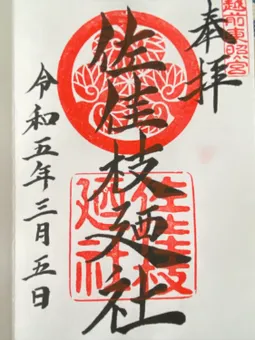 越前東照宮
奉拝
佐佳枝廼社
佐佳枝
廼社
令和五年三月五日